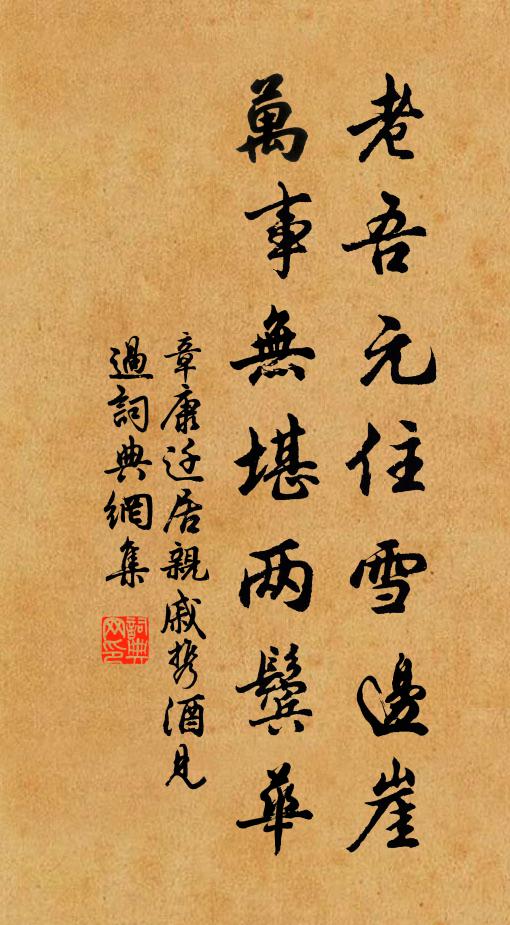 老吾元住雪邊崖
萬事無堪两鬓華
章康迁居親戚携酒見
過詞典網集
詞典网印